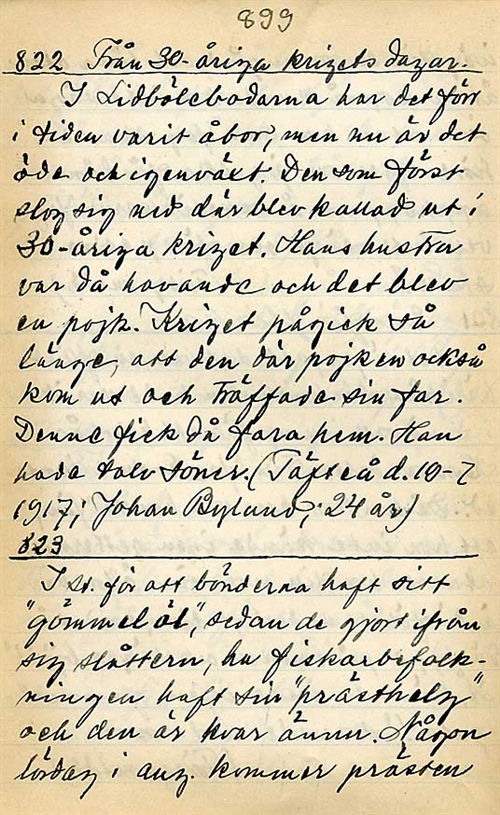 899
822 Från 30-åriga krigets dagar.
I Lidbölebodarna har det förr
i tiden varit åbor, men nu är det
öde och igenväxt. Den som först
slog sig ned där blev kallad ut i
30-åriga kriget. Hans hustru
var då havande och det blev
en pojk. Kriget pågick så
länge, att den där pojken också
kom ut och träffade sin far.
Denne fick då fara hem. Han
hade tolv söner. (Täfteå d. 10-7
1917; Johan Bylund, 24 år)
823
I st. för att bönderna haft sitt
"gömmelöl", sedan de gjort ifrån
sig slåttern, ha fiskarbefolk-
ningen haft sin "prästhelg"
och den är kvar ännu. Någon
lördag i aug. kommer prästen